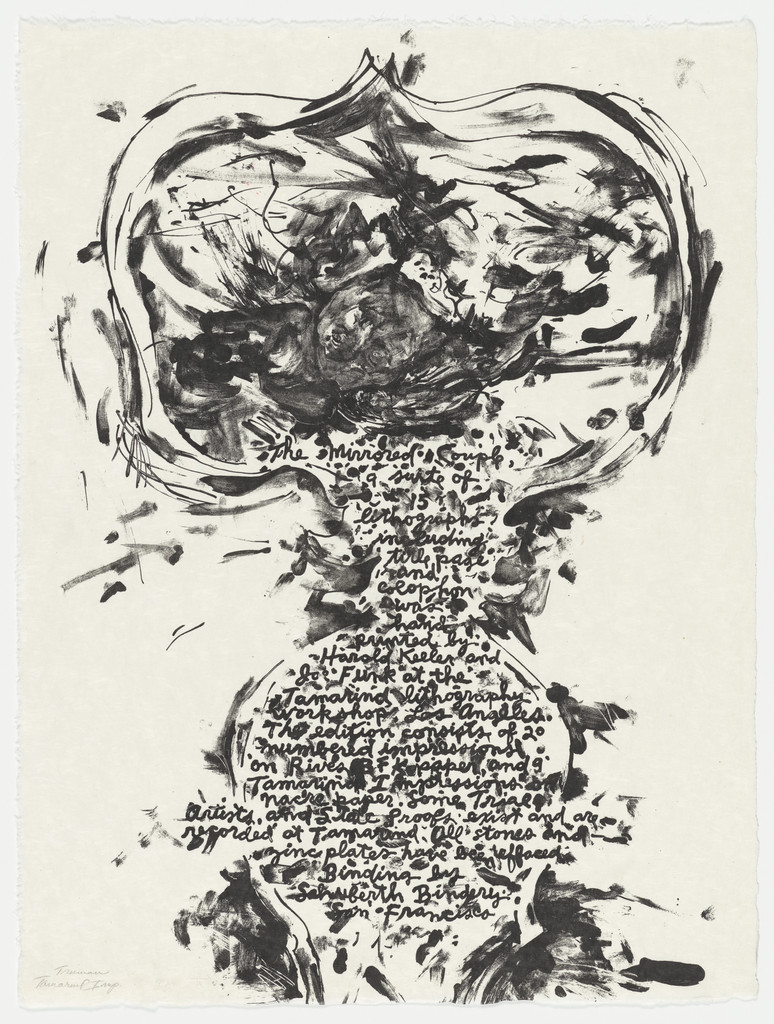 The Mirrored Couple,
a suite of
15
lithographs
including
title page
and
colophon
was
hand
printed by
Harold Keeler and
Joe Funk at the
Tamarind lithography
workshop, Los Angeles.
The edition consists of 20
numbered impressions
on Rives BFK paper, and 9
Tamarind Impressions on
nacre paper. Some Trial,
Artists, and State Proofs exist and are
recorded at Tamarind. All stones and
zinc plates have been effaced.
Binding by
Schuberth Bindery.
San Francisco
Tamarind Imp.